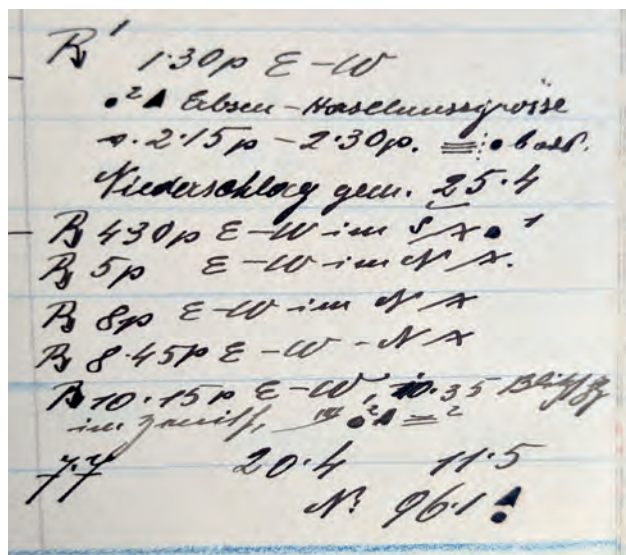 1·30p E-W
●² ▲ Erbsen-Haselnussgrösse
2·15p - 2·30p.
Niederschlag gem. 25·4
4 30p E-W im S ● ¹
5p E-W im N
8p E-W im N
8·45p E-W - N
10·15p E-W, 10·35 Blitz
im Zenith, ●² ▲ ≡²
7.7 20·4 11·5
N: 96·1